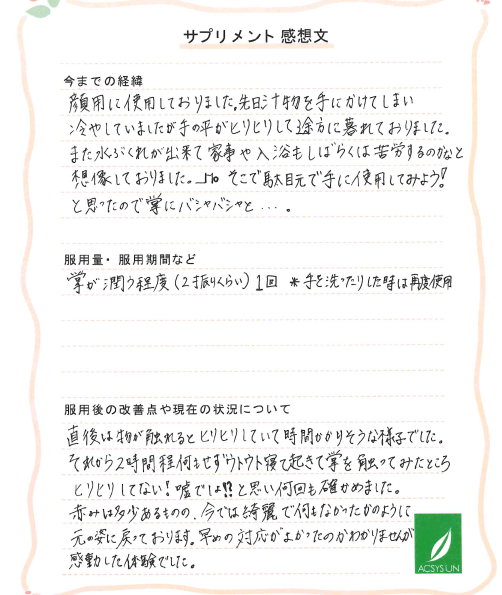 サプリメント 感想文
今までの経緯
顔用に使用しておりました。先日汁物を手にかけてしまい
冷やしていましたが手の平がヒリヒリして途方に暮れておりました。
また水ぶくれが出来て家事や入浴もしばらくは苦労するのかなと
想像しておりました。そこで駄目元で手に使用してみよう!
と思ったので掌にバシャバシャと…。
服用量・服用期間など
掌が潤う程度(2振りくらい)1回 *手を洗ったりした時は再度使用
服用後の改善点や現在の状況について
直後は物が触れるとヒリヒリしていて時間かかりそうな様子でした。
それから2時間程何もせずウトウト寝て起きて掌を触ってみたところ
ヒリヒリしてない!嘘でしょ!?と思い何回も確かめました。
赤みは多少あるものの、今では綺麗で何もなかったかのように
元の姿に戻っております。早めの対応がよかったのかわかりませんが
感動した体験でした。
ACSYSUN